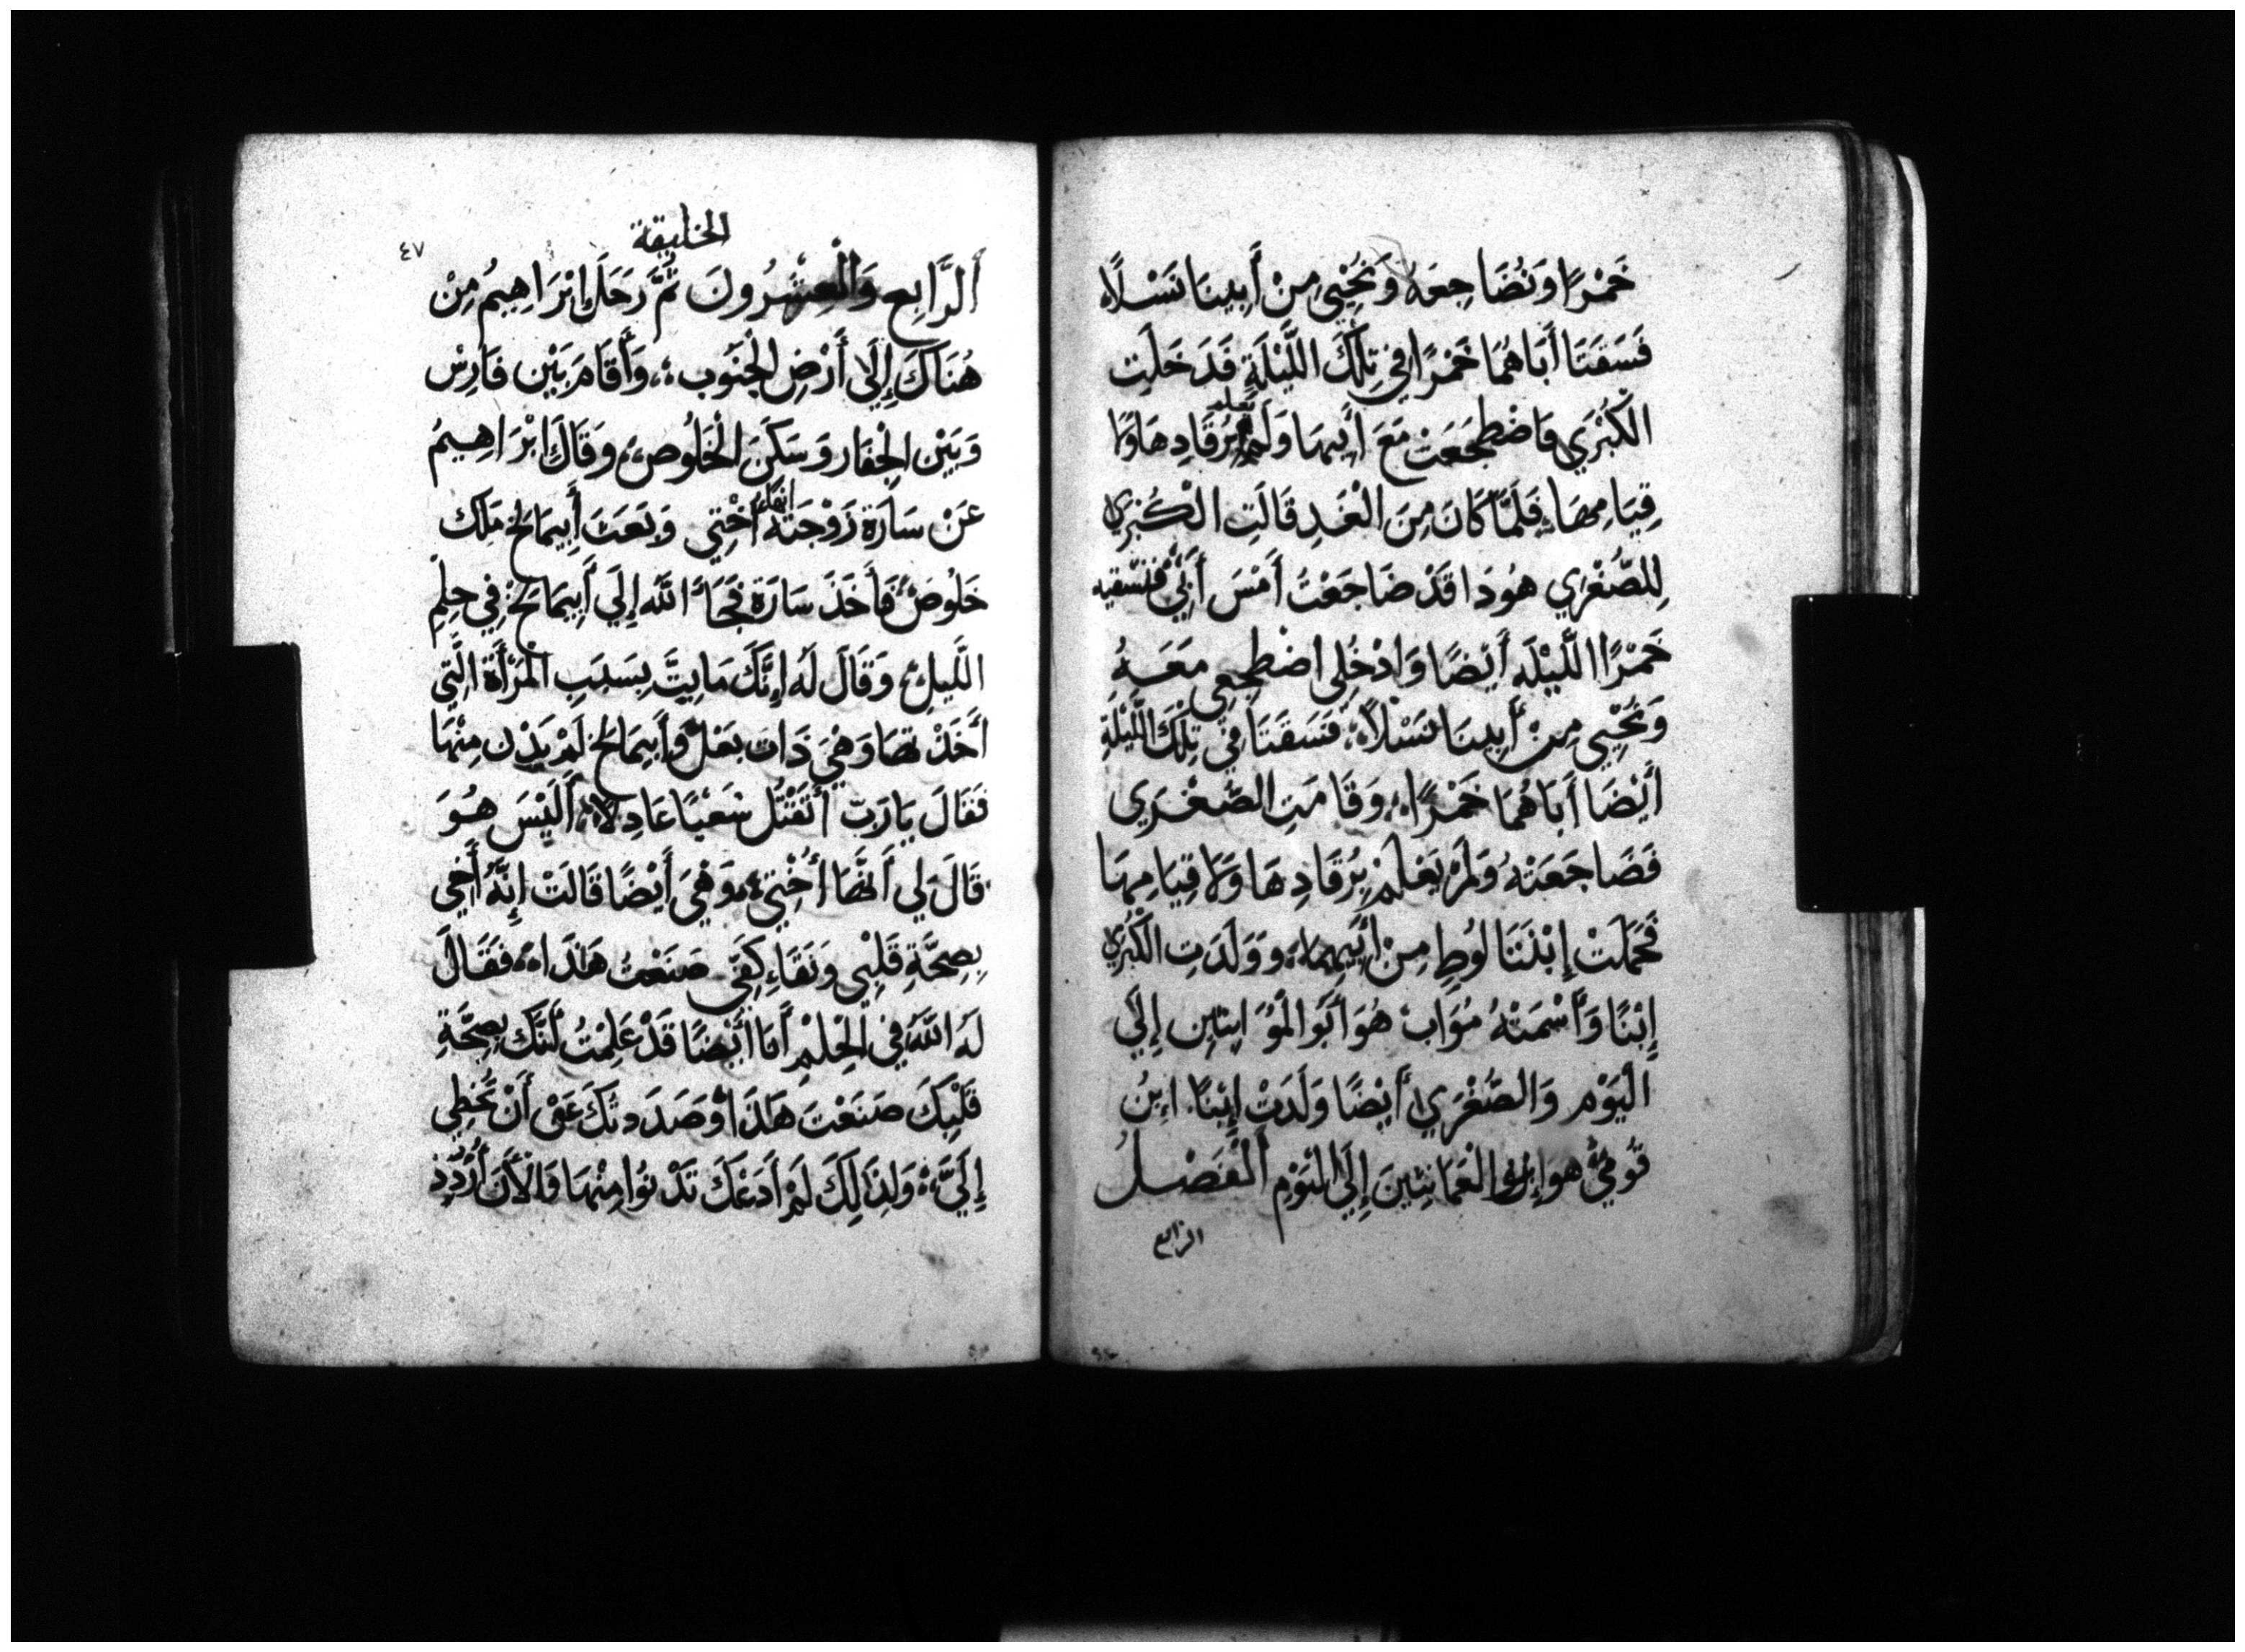 خَمْرًا وَنُضَاجِعَهُ وَنُحْيِي مِنْ أَبِينَا نَسْلًا
فَسَقَتَا أَبَاهُمَا خَمْرًا فِي تِلْكَ اللَّيْلَةِ فَدَخَلَتِ
الْكُبْرَي فَاضْطَجَعَتْ مَعَ أَبِيهَا وَلَمْ يعلم بِرُقَادِهَا وَلَا
قِيَامِهَا فَلَمَّا كَانَ مِنَ الْغَدِ قَالَتِ الْكُبْرَي
لِلصُّغْرَي هُوَذَا قَدْ ضَاجَعْتُ أَمْسَ أَبِي فَنَسْقِيهِ
خَمْرًا اللَّيْلَه أَيْضًا وَادْخُلِي اضْطَجِعِي مَعَهُ
وَنُحْيِي مِنْ أَبِينَا نَسْلًا فَسَقَتَا فِي تِلْكَ اللَّيْلَةِ
أَيْضَا أَبَاهُمَا خَمْرًا وَقَامَتِ الصُّغْرَي
فَضَاجَعَتْهُ وَلَمْ يَعْلَمْ بِرُقَادِهَا وَلَا قِيَامِهَا
فَحَمَلَتْ إِبْنَتَا لُوطٍ مِنْ أَبِيهِمَا وَوَلَدَتِ الْكُبْرَي
إِبْنًا وَأَسْمَتْهُ مُوَابْ هُوَ أَبُو الْمُوَابِيِّين إِلَي
الْيَوْم وَالصُّغْرَي أَيْضًا وَلَدَتْ إِبْنًا إِبْنُ
قُومِي هُوَ الْعَمَانِيِّينَ إِلَي الْيَوْمِ أَلْفَصْلُ
الرابع
الخليقة
٤٧
أَلرَّابِع وَالْعِشْرُونَ ثُمَّ رَحَلَ إِبْرَاهِيمُ مِنْ
هُنَاكَ إِلَي أَرْضِ الْجَنُوب وَأَقَامَ بَيْن قَارِسْ
وَبَيْن الْجِفَار وَسَكَنَ الْخَلُوص وَقَالَ إِبْرَاهِيمُ
عَنْ سَارَة زَوْجَتَهُ انها أُخْتِي وَبَعَثَ أَبِيمَالَخْ مَلِك
خَلُوص فَأَخَذَ سَارَة فَجَاءَ اللَّهُ إِلَي أَبِيمَالَخْ فِي حِلْمِ
اللَّيلِ وَقَالَ لَهُ إِنَّكَ مَايِتَّ بِسَبَبِ الْمَرْأَة الَّتِي
أَخَذْتهَا وَهْيَ ذَات بَعْلٍ وَأَبِيمَالَخْ لَمْ يَدْن مِنْهَا
فَقَالَ يَا رَبّ أَتَقْتُل شَعْبًا عَادِلًا أَلَيْسَ هُوَ
قَالَ لِي أَنَّهَا أُخْتِي وَهْيَ أَيْضًا قَالَتْ إِنَّهُ أَخِي
بِصِحَّةِ قَلْبِي وَنَقَاءِ كَفِّي صَنَعْتُ هَذَا فَقَالَ
لَهُ اللَّهُ فِي الْحِلْمِ أَنَا أَيْضًا قَدْ عَلِمْتُ أَنَّكَ بِصِحَّةِ
قَلْبِكَ صَنَعْتَ هَذَا وَصَدَدتكَ عَنْ أَنْ تُخْطِي
إِلَيَّ وَلِذَالِكَ لَمْ أَدَعْكَ تَدْنُوا مِنْهَا وَالْأَنَ أُرْدُدْ